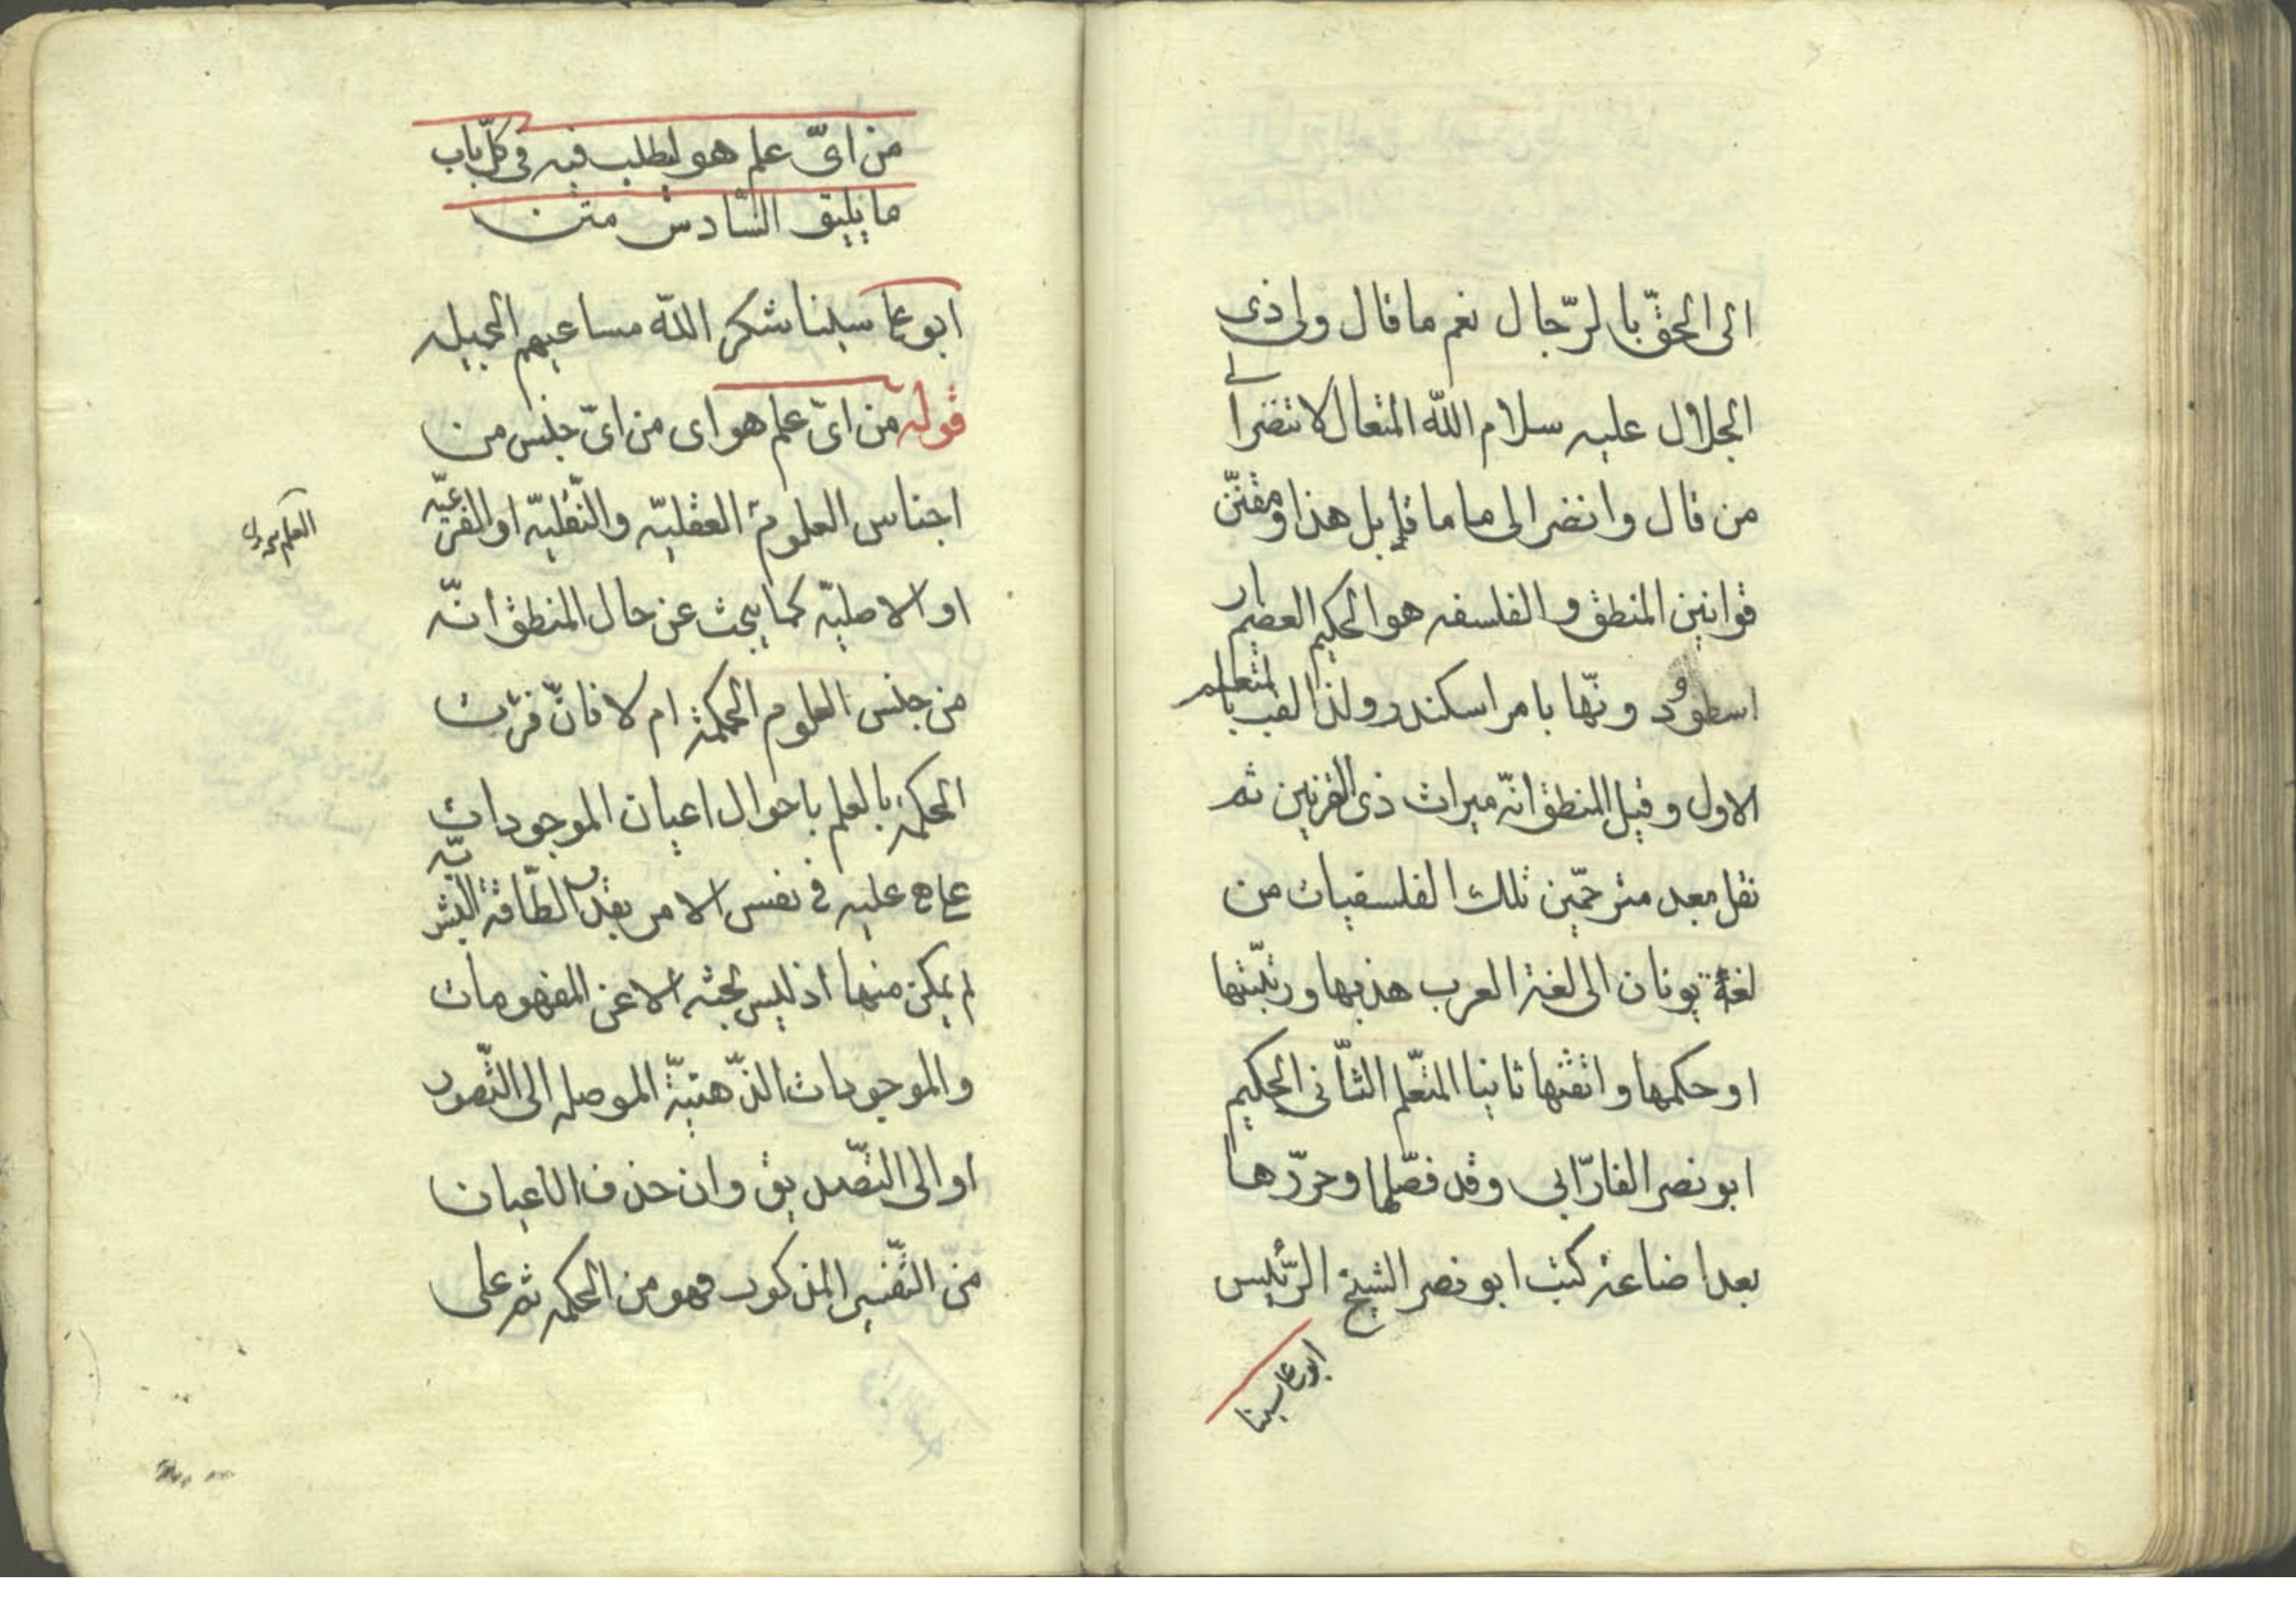 الى الحقّ بالرّجال نعم ما قال ولى ذى
الجلال عليه سلام اللّه المتعال لا تنضر الى
من قال وانضر الى ما قال بل هذا ومقنّن
قوانين المنطق والفلسفه هو الحكيم العضيم ار
اسطو ودونّها بامر اسكندر ولذا لقب بالمتعلم
الاول وقيل للمنطق انّه ميراث ذى القرنين ثم
نقل بعد مترجمّين تلك الفلسفيات من
لغة يونان الى لغة العرب هذبها ورتّبتها
او حكمها واتقنها ثانيا المتّعلم الثّانى الحكيم
ابو نصر الفارّابى وقد فصّلها وحرّرها
بعد اضاعة كتب ابو نصر الشيخ الرّئيس
ابو علي سينا
من اىّ علم هو ليطلب فيه فى كلّ باب
ما يليق السّادس متن
ابو علي سينا شكر اللّه مساعيهم الجميله
قوله من اىّ علم هو اى من اىّ جنس من
اجناس العلوم العقليّه والنّقليّه او الفرعيّه
او الاصليّه كما يبحث عن حال المنطق انّه
من جنس العلوم الحكمة ام لا فانّ فرّت
الحكمة بالعلم باحوال اعيان الموجودات
علي ما هى عليه فى نفس الامر بقدر الطّاقة البشريّه
لم يمكن منها اذ ليس بحثه الا عن المفهومات
والموجودات الذّهنيّة الموصله الى التّصور
او الى التّصديق وان حذف الاعيان
من التّفسير المذكور فهو من الحكمه ثم على